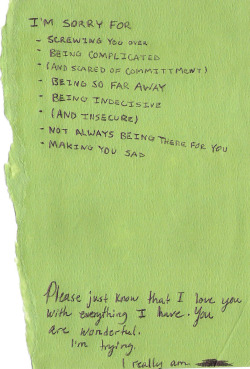 I'M SORRY FOR
- SCREWING YOU OVER
- BEING COMPLICATED
- (AND SCARED OF COMMITTMENT)
- BEING SO FAR AWAY
- BEING INDECISIVE
- (AND INSECURE)
- NOT ALWAYS BEING THERE FOR YOU
- MAKING YOU SAD
Please just know that I love you
with everything I have. You
are wonderful.
I'm trying.
I really am